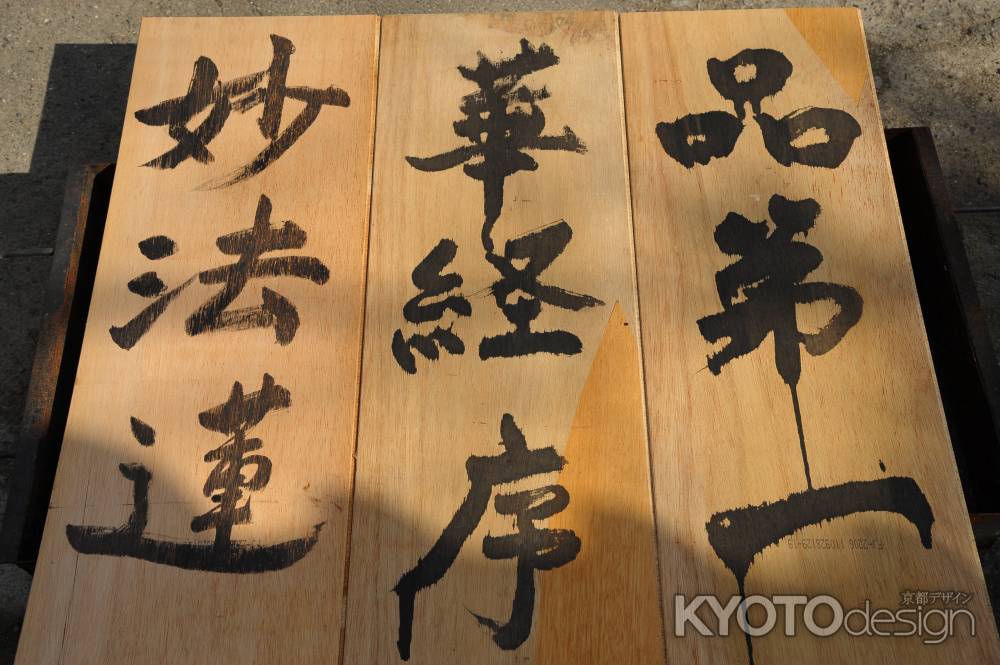 妙法蓮
華経序
品第一
FJ-2206 110928129-19
京都デザイン
KYOTOdesign